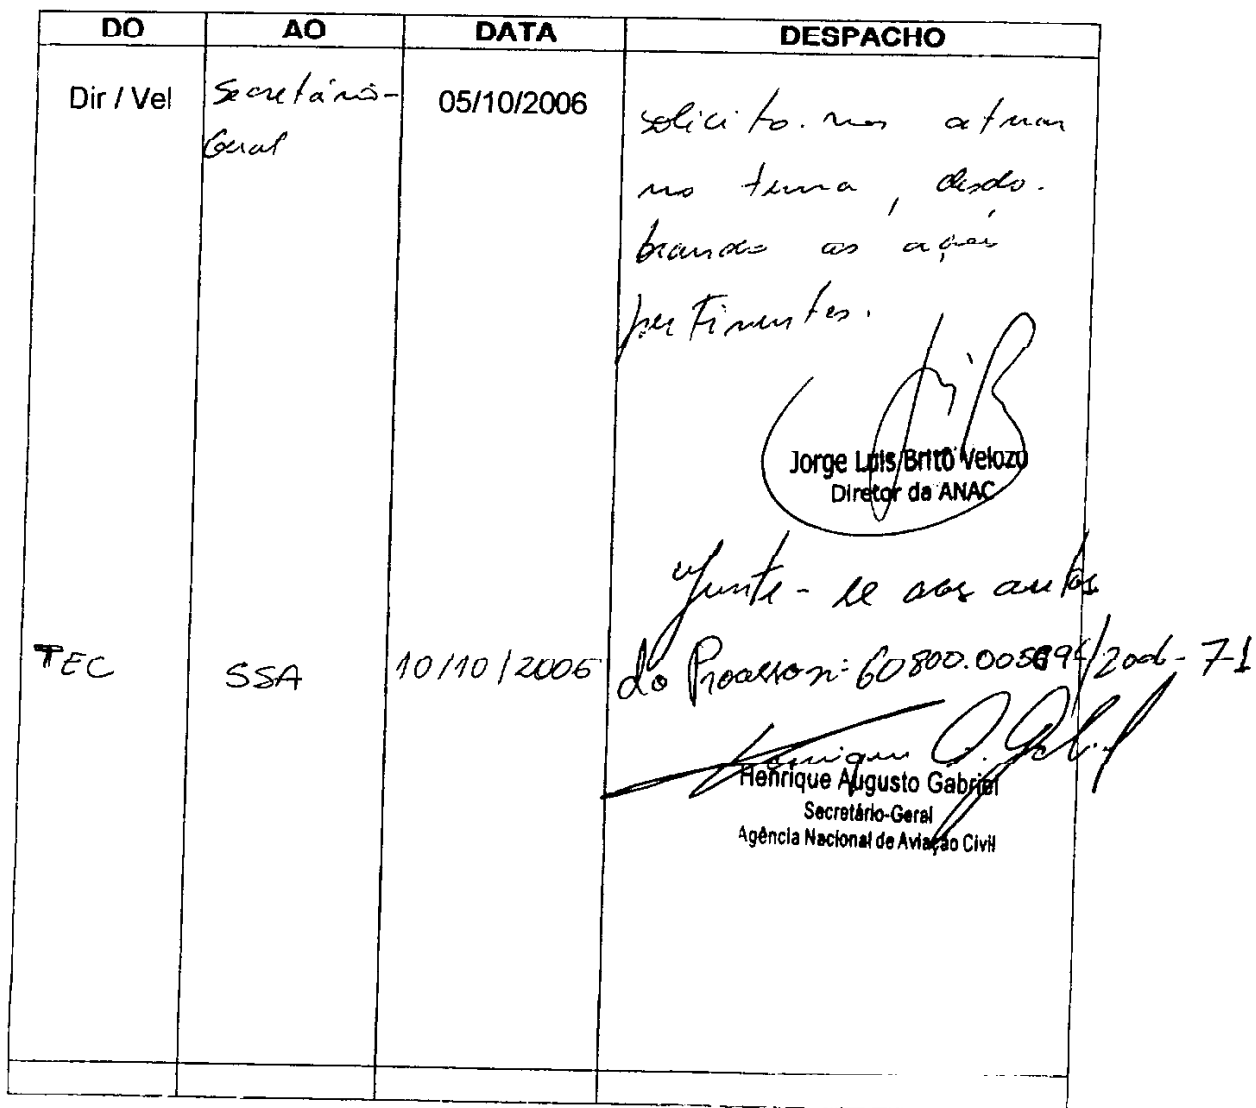 DO AO DATA DESPACHO
Dir / Vel Secretário-
Geral
05/10/2006
solicito-nos atuar
no tema, desdo-
brando as ações
pertinentes.
Jorge Luis Brito Velozo
Diretor da ANAC
Junte-se aos autos
TEC SSA 10/10/2006 do Processo nº 60800. /2006-71
Henrique Augusto Gabriel
Secretário-Geral
Agência Nacional de Aviação Civil